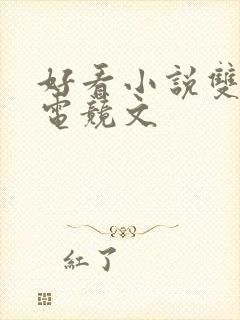 好看小說雙
電競文
紅了